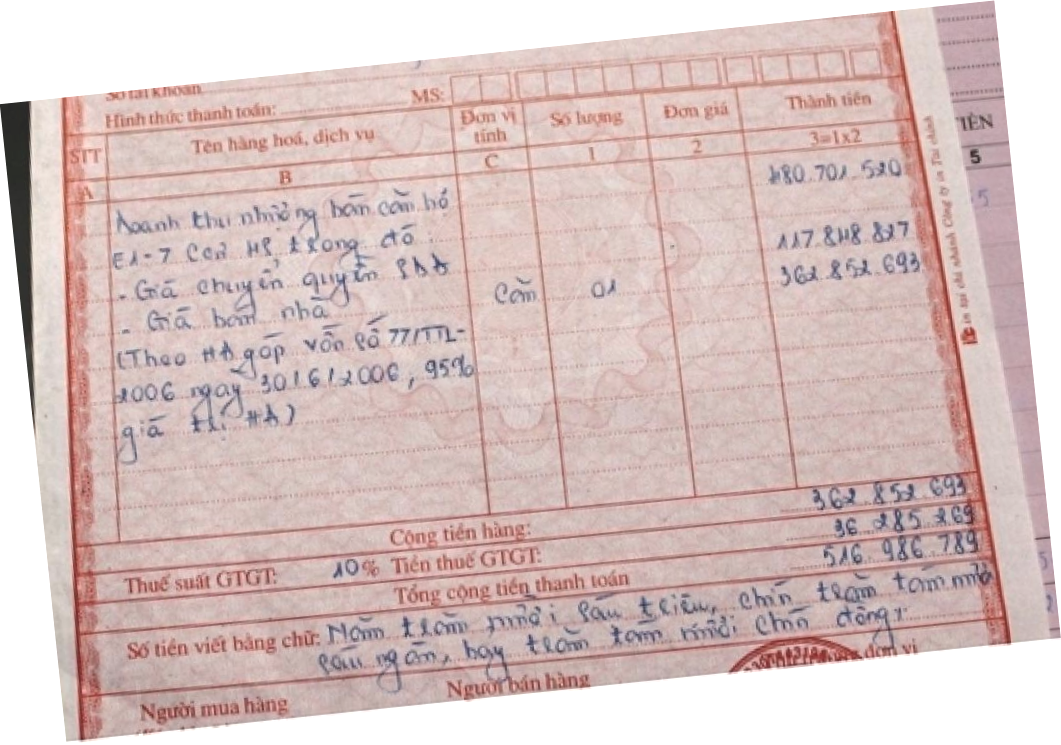 Số tài khoản
Hình thức thanh toán: MS:
STT Tên hàng hoá, dịch vụ Đơn vị tính Số lượng Đơn giá Thành tiền
A B C 1 2 3=1x2
Doanh thu nhượng bán căn hộ 480.701.520
E1-7 CC2 MĐ, trong đó:
- Giá chuyển quyền SDĐ 117.848.827
- Giá bán nhà Căn 01 362.852.693
(Theo HĐ góp vốn số 77/TTL-
2006 ngày 30/6/2006, 95%
giá trị HĐ)
Cộng tiền hàng: 362.852.693
Thuế suất GTGT: 10% Tiền thuế GTGT: 36.285.269
Tổng cộng tiền thanh toán 516.986.789
Số tiền viết bằng chữ: Năm trăm mười sáu triệu, chín trăm tám mươi
sáu ngàn, bảy trăm tám mươi chín đồng.
Người mua hàng Người bán hàng đơn vị
in tại chi nhánh Công ty in Tài chính
TIỀN
5
5